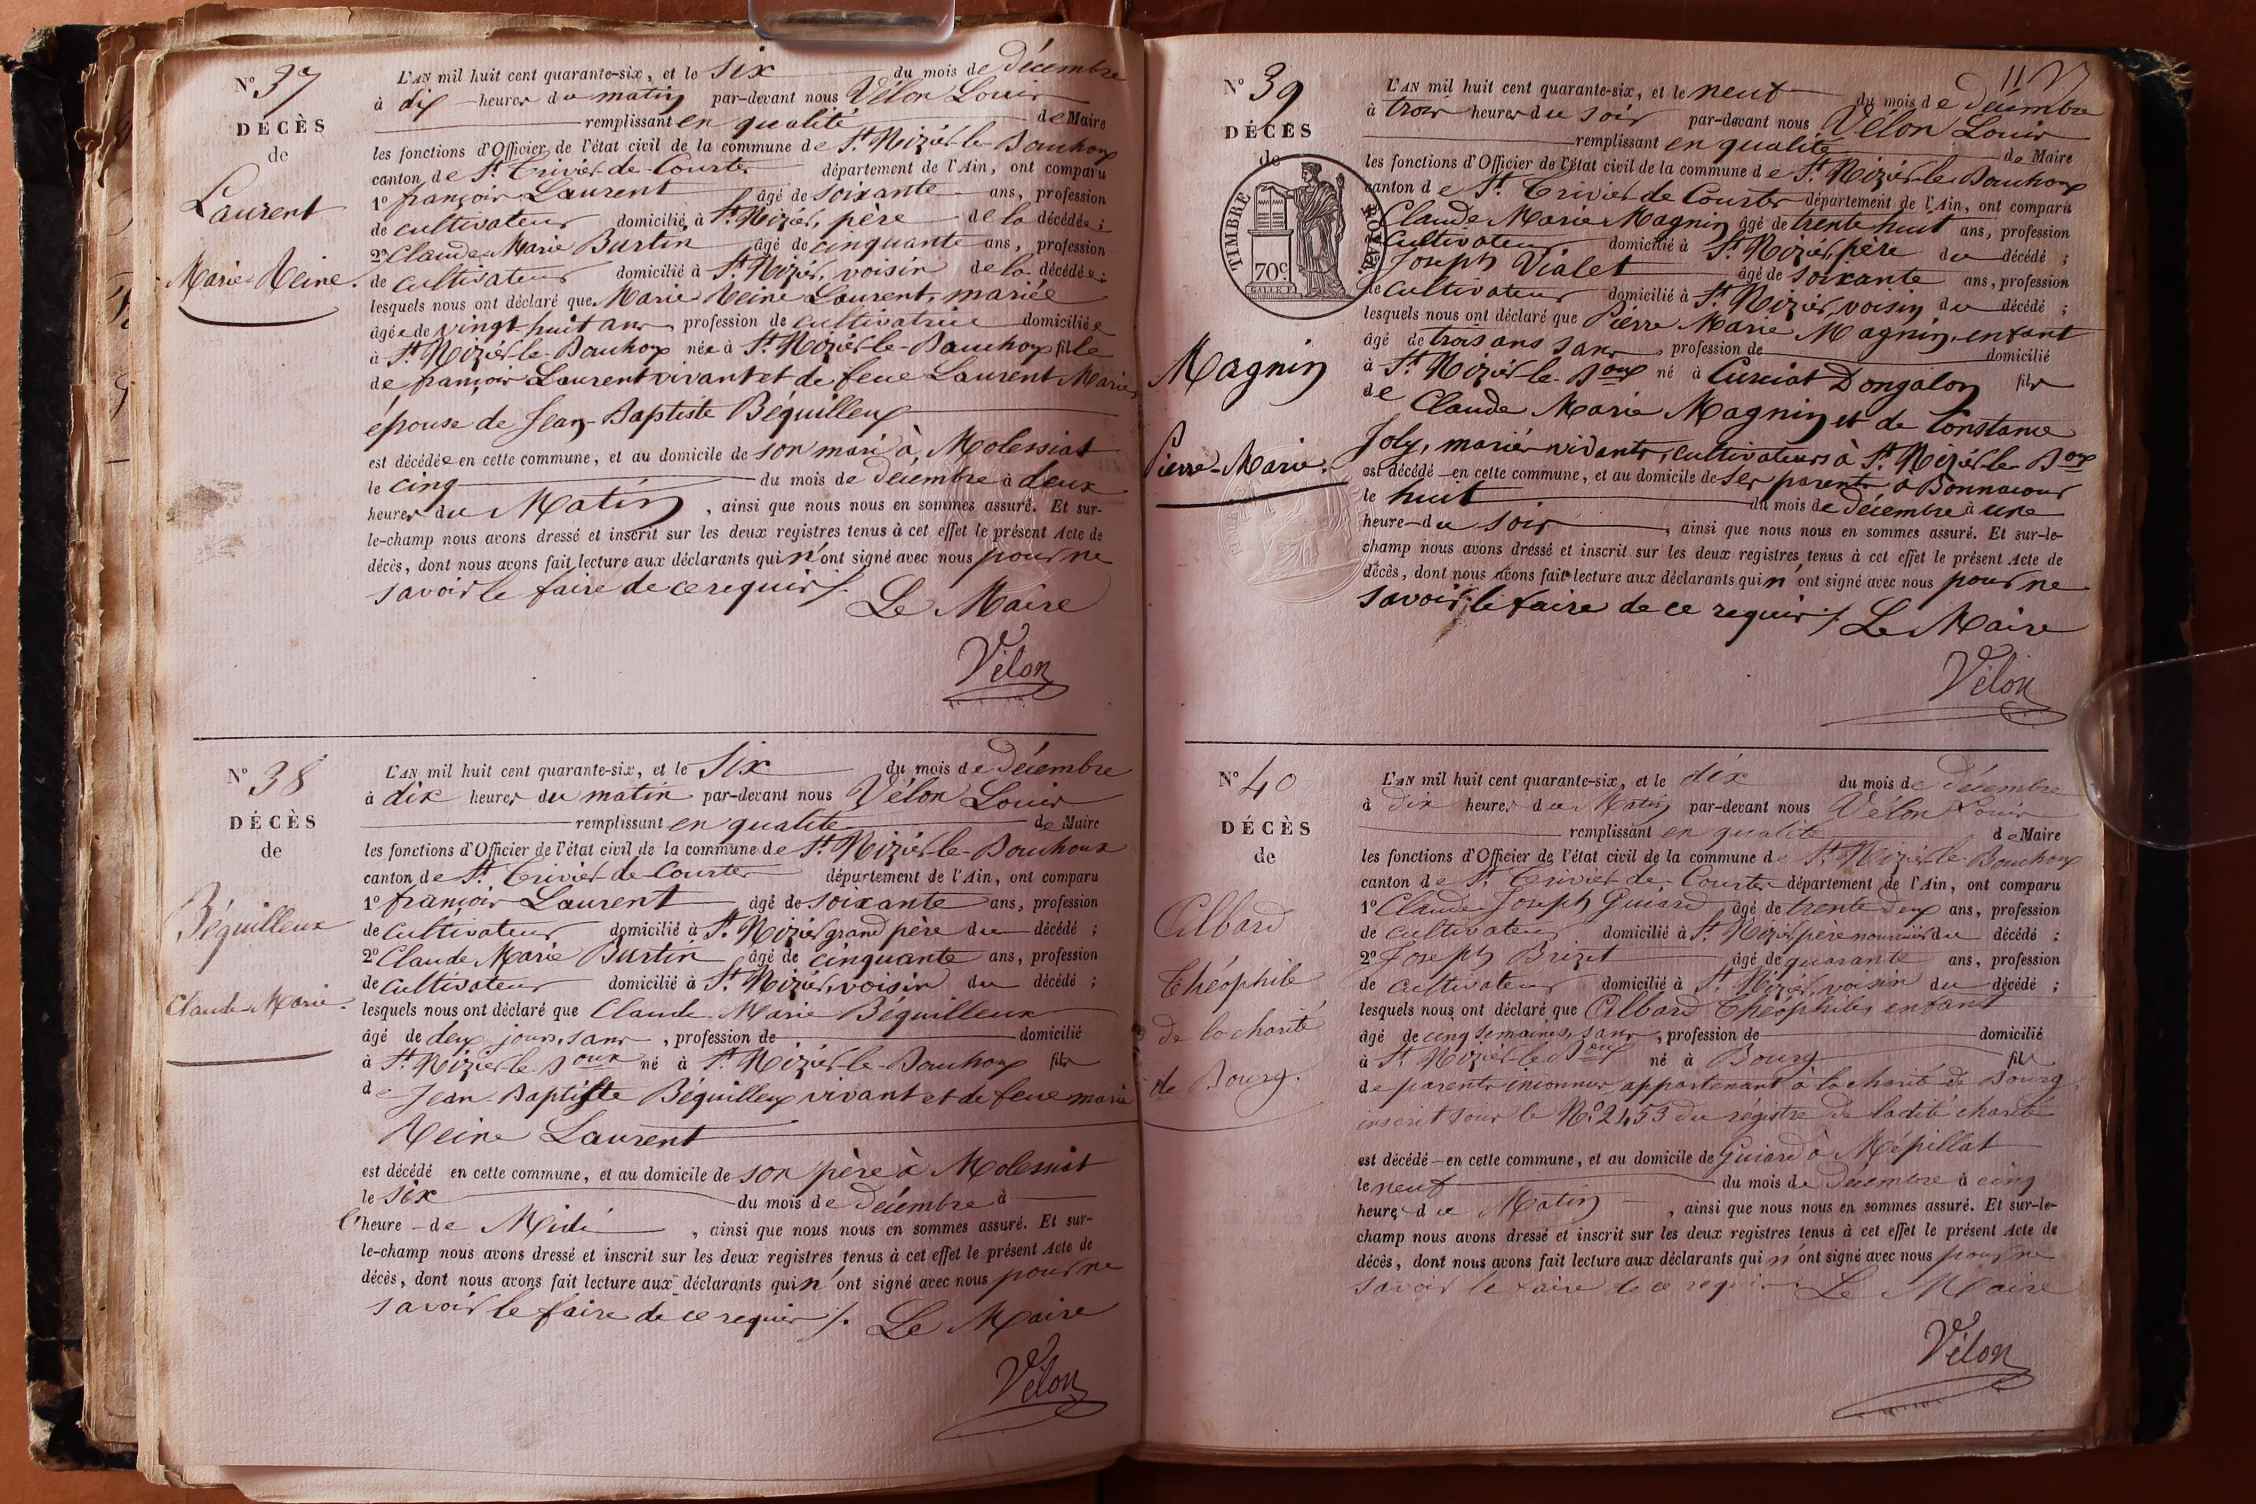 N° 37
DÉCÈS
de
Laurent
Marie-Reine.
L'AN mil huit cent quarante-six, et le six du mois de décembre
à dix heures du matin par-devant nous Vélon Louis
remplissant en qualité de Maire
les fonctions d'Officier de l'état civil de la commune de St Nizier-le-Bouchoux
canton de St Trivier-de-Courtes département de l'Ain, ont comparu
1° françois Laurent âgé de soixante ans, profession
de cultivateur domicilié à St Nizier, père de la décédée ;
2° Claude-Marie Burtin âgé de cinquante ans, profession
de cultivateur domicilié à St Nizier, voisin de la décédée ;
lesquels nous ont déclaré que Marie Reine Laurent, mariée
âgée de vingt-huit ans profession de cultivatrice domiciliée
à St Nizier-le-Bouchoux née à St Nizier-le-Bouchoux fille
de françois Laurent vivant et de feue Laurent Marie
épouse de Jean-Baptiste Béguilleux
est décédée en cette commune, et au domicile de son mari à Molessiat
le cinq du mois de décembre à deux
heures du Matin, ainsi que nous nous en sommes assuré. Et sur-
le-champ nous avons dressé et inscrit sur les deux registres tenus à cet effet le présent Acte de
décès, dont nous avons fait lecture aux déclarants qui n'ont signé avec nous pour ne
savoir le faire de ce requis /. Le Maire
Vélon
N° 38
DÉCÈS
de
Béguilleux
Claude-Marie.
L'AN mil huit cent quarante-six, et le six du mois de décembre
à dix heures du matin par-devant nous Vélon Louis
remplissant en qualité de Maire
les fonctions d'Officier de l'état civil de la commune de St Nizier-le-Bouchoux
canton de St Trivier-de-Courtes département de l'Ain, ont comparu
1° françois Laurent âgé de soixante ans, profession
de cultivateur domicilié à St Nizier grand père du décédé ;
2° Claude Marie Burtin âgé de cinquante ans, profession
de cultivateur domicilié à St Nizier, voisin du décédé ;
lesquels nous ont déclaré que Claude Marie Béguilleux
âgé de deux jours, sans, profession de domicilié
à St Nizier-le-Boux né à St Nizier-le-Bouchoux fils
de Jean Baptiste Béguilleux vivant et de feue marie
Reine Laurent
est décédé en cette commune, et au domicile de son père à Molessiat
le six du mois de décembre à
l'heure de Midi, ainsi que nous nous en sommes assuré. Et sur-
le-champ nous avons dressé et inscrit sur les deux registres tenus à cet effet le présent Acte de
décès, dont nous avons fait lecture aux déclarants qui n'ont signé avec nous pour ne
savoir le faire de ce requis /. Le Maire
Vélon
11
N° 39
DÉCÈS
de
TIMBRE ROYAL
70c
Magnin
Pierre-Marie.
L'AN mil huit cent quarante-six, et le neuf du mois de décembre
à trois heures du soir par-devant nous Vélon Louis
remplissant en qualité de Maire
les fonctions d'Officier de l'état civil de la commune de St Nizier-le-Bouchoux
canton de St Trivier de Courtes département de l'Ain, ont comparu
Claude Marie Magnin âgé de trente huit ans, profession
cultivateur, domicilié à St Nizier, père du décédé ;
Joseph Vialet âgé de soixante ans, profession
de cultivateur domicilié à St Nizier, voisin du décédé ;
lesquels nous ont déclaré que Pierre Marie Magnin, enfant
âgé de trois ans sans, profession de domicilié
à St Nizier-le-Boux né à Curciat Dongalon fils
de Claude Marie Magnin et de Constance
Joly, mariés vivants, cultivateurs à St Nizier-le-Boux
est décédé en cette commune, et au domicile de ses parents à Bonnacour
le huit du mois de décembre à une
heure du soir, ainsi que nous nous en sommes assuré. Et sur-le-
champ nous avons dressé et inscrit sur les deux registres tenus à cet effet le présent Acte de
décès, dont nous avons fait lecture aux déclarants qui n'ont signé avec nous pour ne
savoir le faire de ce requis /. Le Maire
Vélon
N° 40
DÉCÈS
de
Albard
Théophile
de la charité
de Bourg.
L'AN mil huit cent quarante-six, et le dix du mois de décembre
à dix heures du Matin par-devant nous Vélon Louis
remplissant en qualité de Maire
les fonctions d'Officier de l'état civil de la commune de St Nizier-le-Bouchoux
canton de St Trivier-de-Courtes département de l'Ain, ont comparu
1° Claude Joseph Guiard âgé de trente deux ans, profession
de cultivateur domicilié à St Nizier père nourricier du décédé ;
2° Joseph Brizet âgé de quarante ans, profession
de cultivateur domicilié à St Nizier, voisin du décédé ;
lesquels nous ont déclaré que Albard Théophile, enfant
âgé de cinq semaines, sans, profession de domicilié
à St Nizier-le-Boux né à Bourg fils
de parents inconnus appartenant à la charité de Bourg,
inscrit sous le N° 2453 du régistre de ladite charité
est décédé en cette commune, et au domicile de Guiard à Mépillat
le neuf du mois de décembre à cinq
heures du Matin, ainsi que nous nous en sommes assuré. Et sur-le-
champ nous avons dressé et inscrit sur les deux registres tenus à cet effet le présent Acte de
décès, dont nous avons fait lecture aux déclarants qui n'ont signé avec nous pour ne
savoir le faire de ce requis Le Maire
Vélon